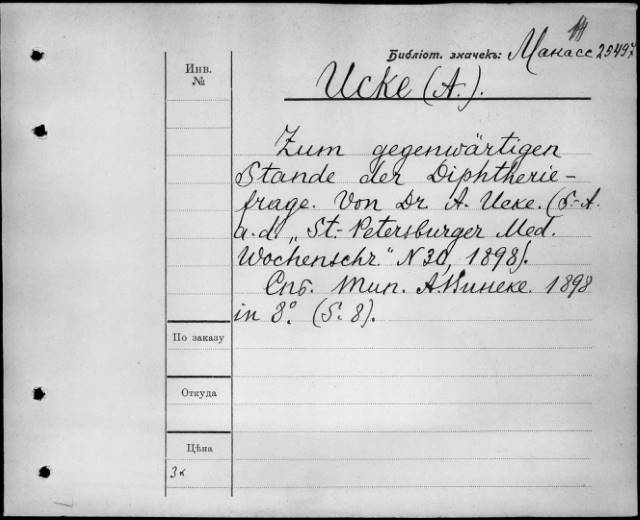 14
Библіот. значекъ: Манасс 25497
Инв.
№
Ucke (A.).
Zum gegenwärtigen
Stande der Diphtherie-
frage. Von Dr. A. Ucke. (S.-A.
a. d. „St.-Petersburger Med.
Wochenschr." N 30, 1898).
Спб. Тип. А. Винеке. 1898
in 8°. (S. 8).
По заказу
Откуда
Цѣна
3к